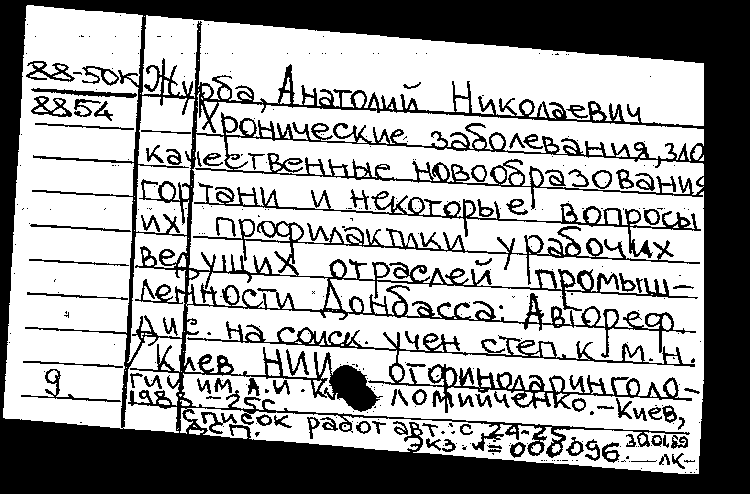 88-50к Журба, Анатолий Николаевич
8854 Хронические заболевания, зло
качественные новообразования
гортани и некоторые вопросы
их профилактики у рабочих
ведущих отраслей промыш-
ленности Донбасса: Автореф.
дис. на соиск. учен степ. к. м. н.
/ Киев. НИИ оториноларинголо-
9. гии им. А. И. Коломийченко. - Киев,
1988. - 25с.
Список работ авт.: с. 24-25.
ДСП. Экз. № 000096. 30.01.89
лк-